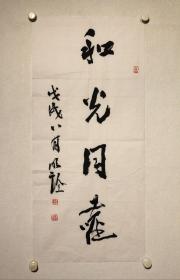 和光同塵
戊戌八月